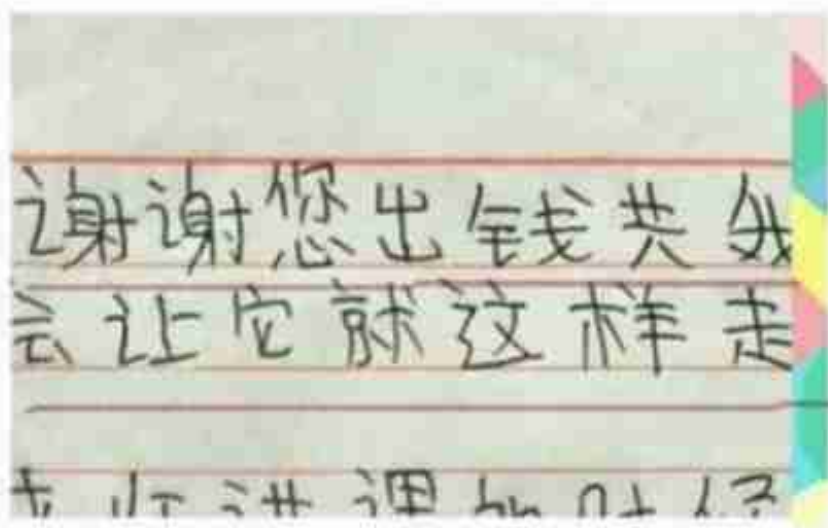 谢谢您出钱共我
会让它就这样走